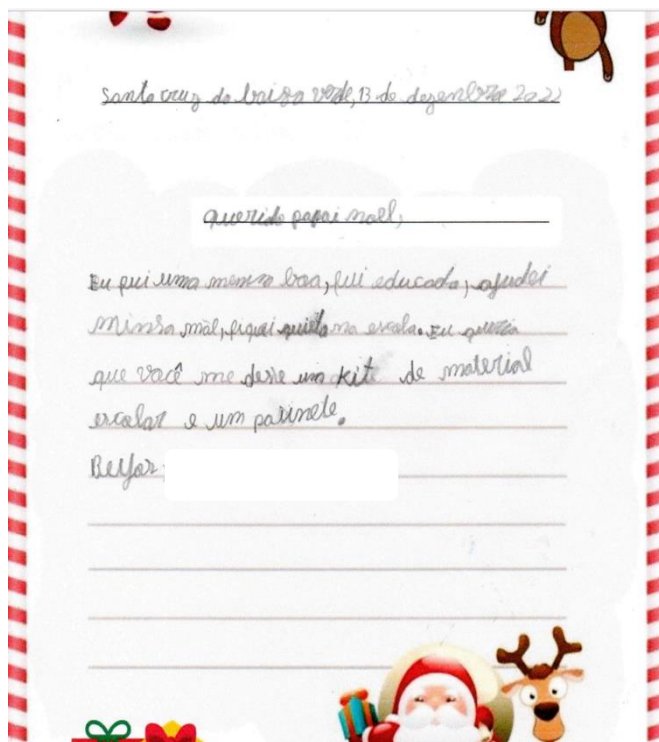 Santa cruz da baixa verde, 13 de dezenbro 2022
querido papai noel,
Eu fui uma menina boa, fui educada, ajudei
minha mãe, fiquei quieta na escola. Eu queria
que você me desse um kit de material
escolar e um patinete.